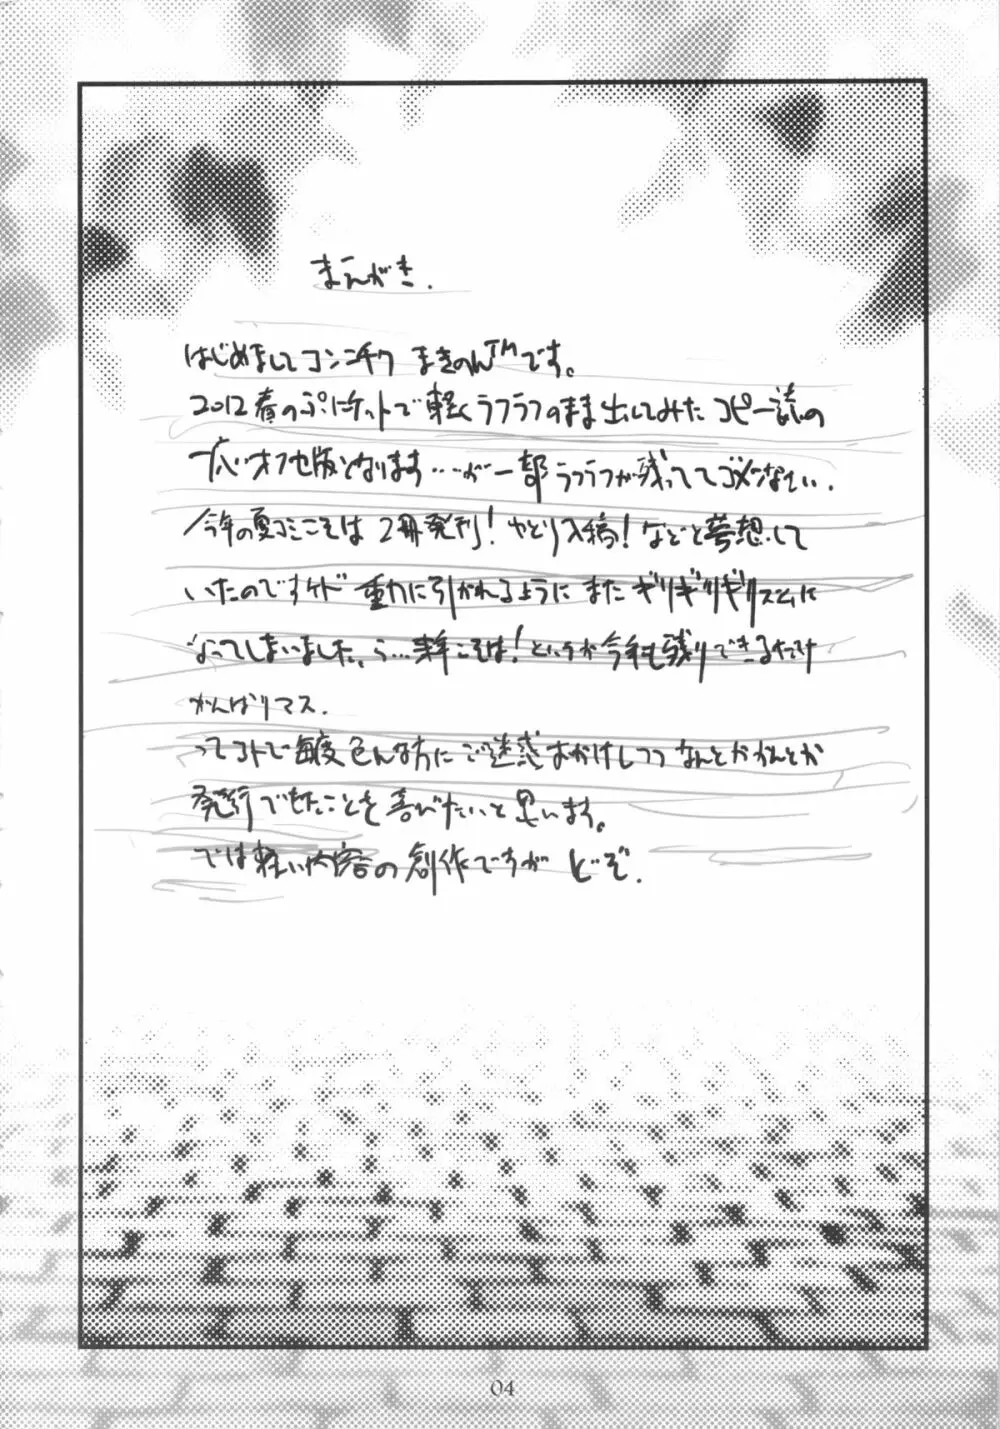 まえがき.
はじめましてコンニチワ まきのんTMです。
2012春のぷにケットで軽くラフラフのまま出してみた コピー誌の
オフセ版となります……が一部ラフラフが残っててゴメンなさい.
今年の夏コミこそは 2冊発刊! ゆとり入稿! などと夢想して
いたのですけド 重力に引かれるように またギリギリギリズムに
なってしまいました。ら…来年こそは! というか今年も残りできるだけ
がんばりマス.
ってコトで毎度色んな方にご迷惑おかけしつつ なんとかかんとか
発行できたことを喜びたいと思います。
では軽い内容の創作ですが どうぞ.
04